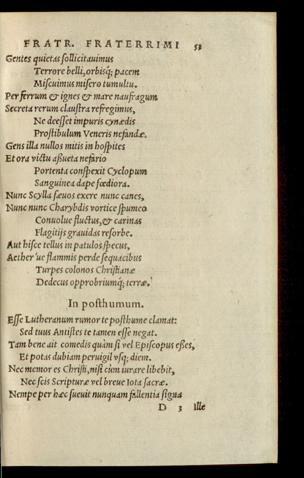 FRATR. FRATERRIMI 53
Gentes quietas sollicitauimus
Terrore belli, orbisq; pacem
Miscuimus misero tumultu.
Per ferrum & ignes & mare naufragum
Secreta rerum claustra refregimus,
Ne deesset impuris cynædis
Prostibulum Veneris nefandæ.
Gens illa nullos mitis in hospites
Et ora victu assueta nefario
Portenta conspexit Cyclopum
Sanguinea dape fœdiora.
Nunc Scylla sæuos exere nunc canes,
Nunc nunc Charybdis vortice spumeo
Conuolue fluctus, & carinas
Flagitijs grauidas resorbe.
Aut hisce tellus in patulos specus,
Aether ue flammis perde sequacibus
Turpes colonos Christianæ
Dedecus opprobriumq; terræ.
In posthumum.
Esse Lutheranum rumor te posthume clamat:
Sed tuus Antistes te tamen esse negat.
Tam bene ait comedis quàm si vel Episcopus esses,
Et potas dubiam peruigil vsq; diem.
Nec memor es Christi, nisi cùm iurare libebit,
Nec scis Scripturæ vel breue Iota sacræ.
Nempe per hæc sueuit nunquam fallentia signa
D 3 ille